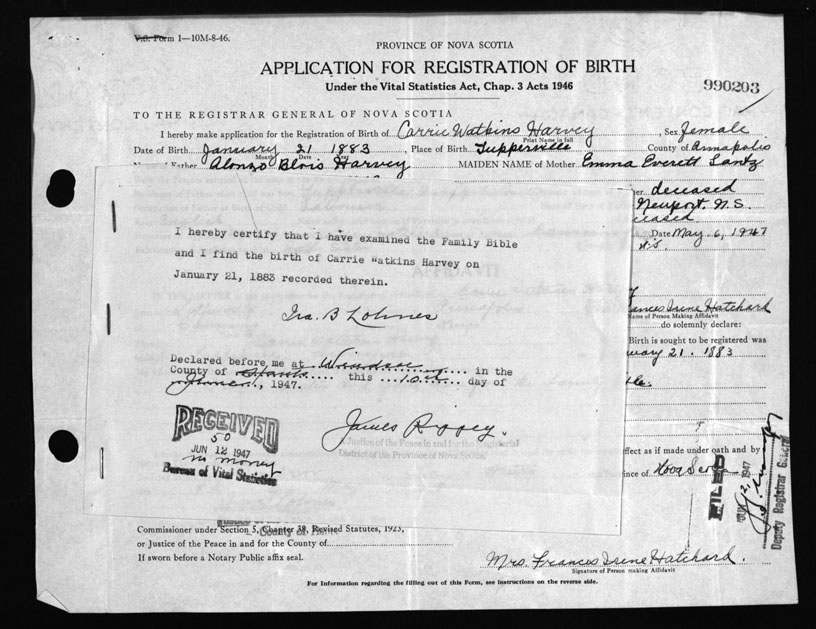 V.S. Form 1—10M-8-46.
PROVINCE OF NOVA SCOTIA
APPLICATION FOR REGISTRATION OF BIRTH
Under the Vital Statistics Act, Chap. 3 Acts 1946
990203
TO THE REGISTRAR GENERAL OF NOVA SCOTIA
I hereby make application for the Registration of Birth of Carrie Watkins Harvey, Sex female
Print Name in full
Date of Birth January 21 1883, Place of Birth Tupperville County of Annapolis
Month Date Year
Father Alonzo Blois Harvey MAIDEN NAME of Mother Emma Everett Lantz
deceased
Newport N.S.
deceased
Date May 6, 1947
N.S.
Frances Irene Hatchard
Name of Person Making Affidavit
do solemnly declare:
Birth is sought to be registered was
January 21. 1883
effect as if made under oath and by
Province of Nova Scotia
I hereby certify that I have examined the Family Bible
and I find the birth of Carrie Watkins Harvey on
January 21, 1883 recorded therein.
Ira. B Lohnes
Declared before me at Windsor in the
County of Hants this 10th day of
June, 1947.
James Rippey.
A Justice of the Peace in and for the
District of the Province of Nova Scotia
RECEIVED
50
JUN 12 1947
in money
Bureau of Vital Statistics
FILED
JUN 12, 1947
Deputy Registrar General
Commissioner under Section 5, Chapter 38, Revised Statutes, 1923,
or Justice of the Peace in and for the County of
If sworn before a Notary Public affix seal.
Mrs. Frances Irene Hatchard.
Signature of Person making Affidavit
For Information regarding the filling out of this Form, see instructions on the reverse side.